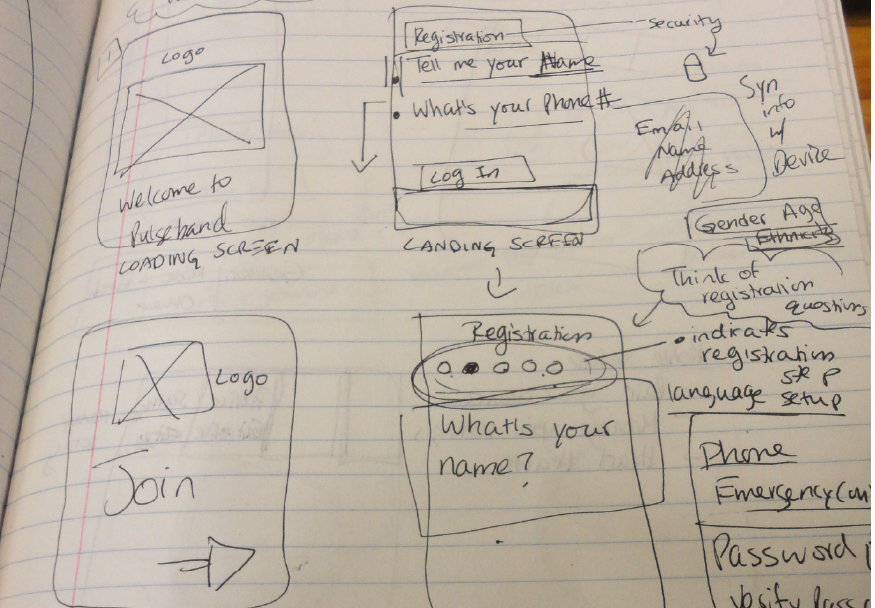 1
Logo
Welcome to
Pulseband
LOADING SCREEN
Registration
Tell me your Name
What's your phone #
Log In
LANDING SCREEN
security
Syn
info
w/
Device
Email
Name
Address
Gender Age
Ethnicity
Think of
registration
questions
Logo
Join
Registration
What's your
name?
indicates
registration
step
language setup
Phone
Emergency Con
Password